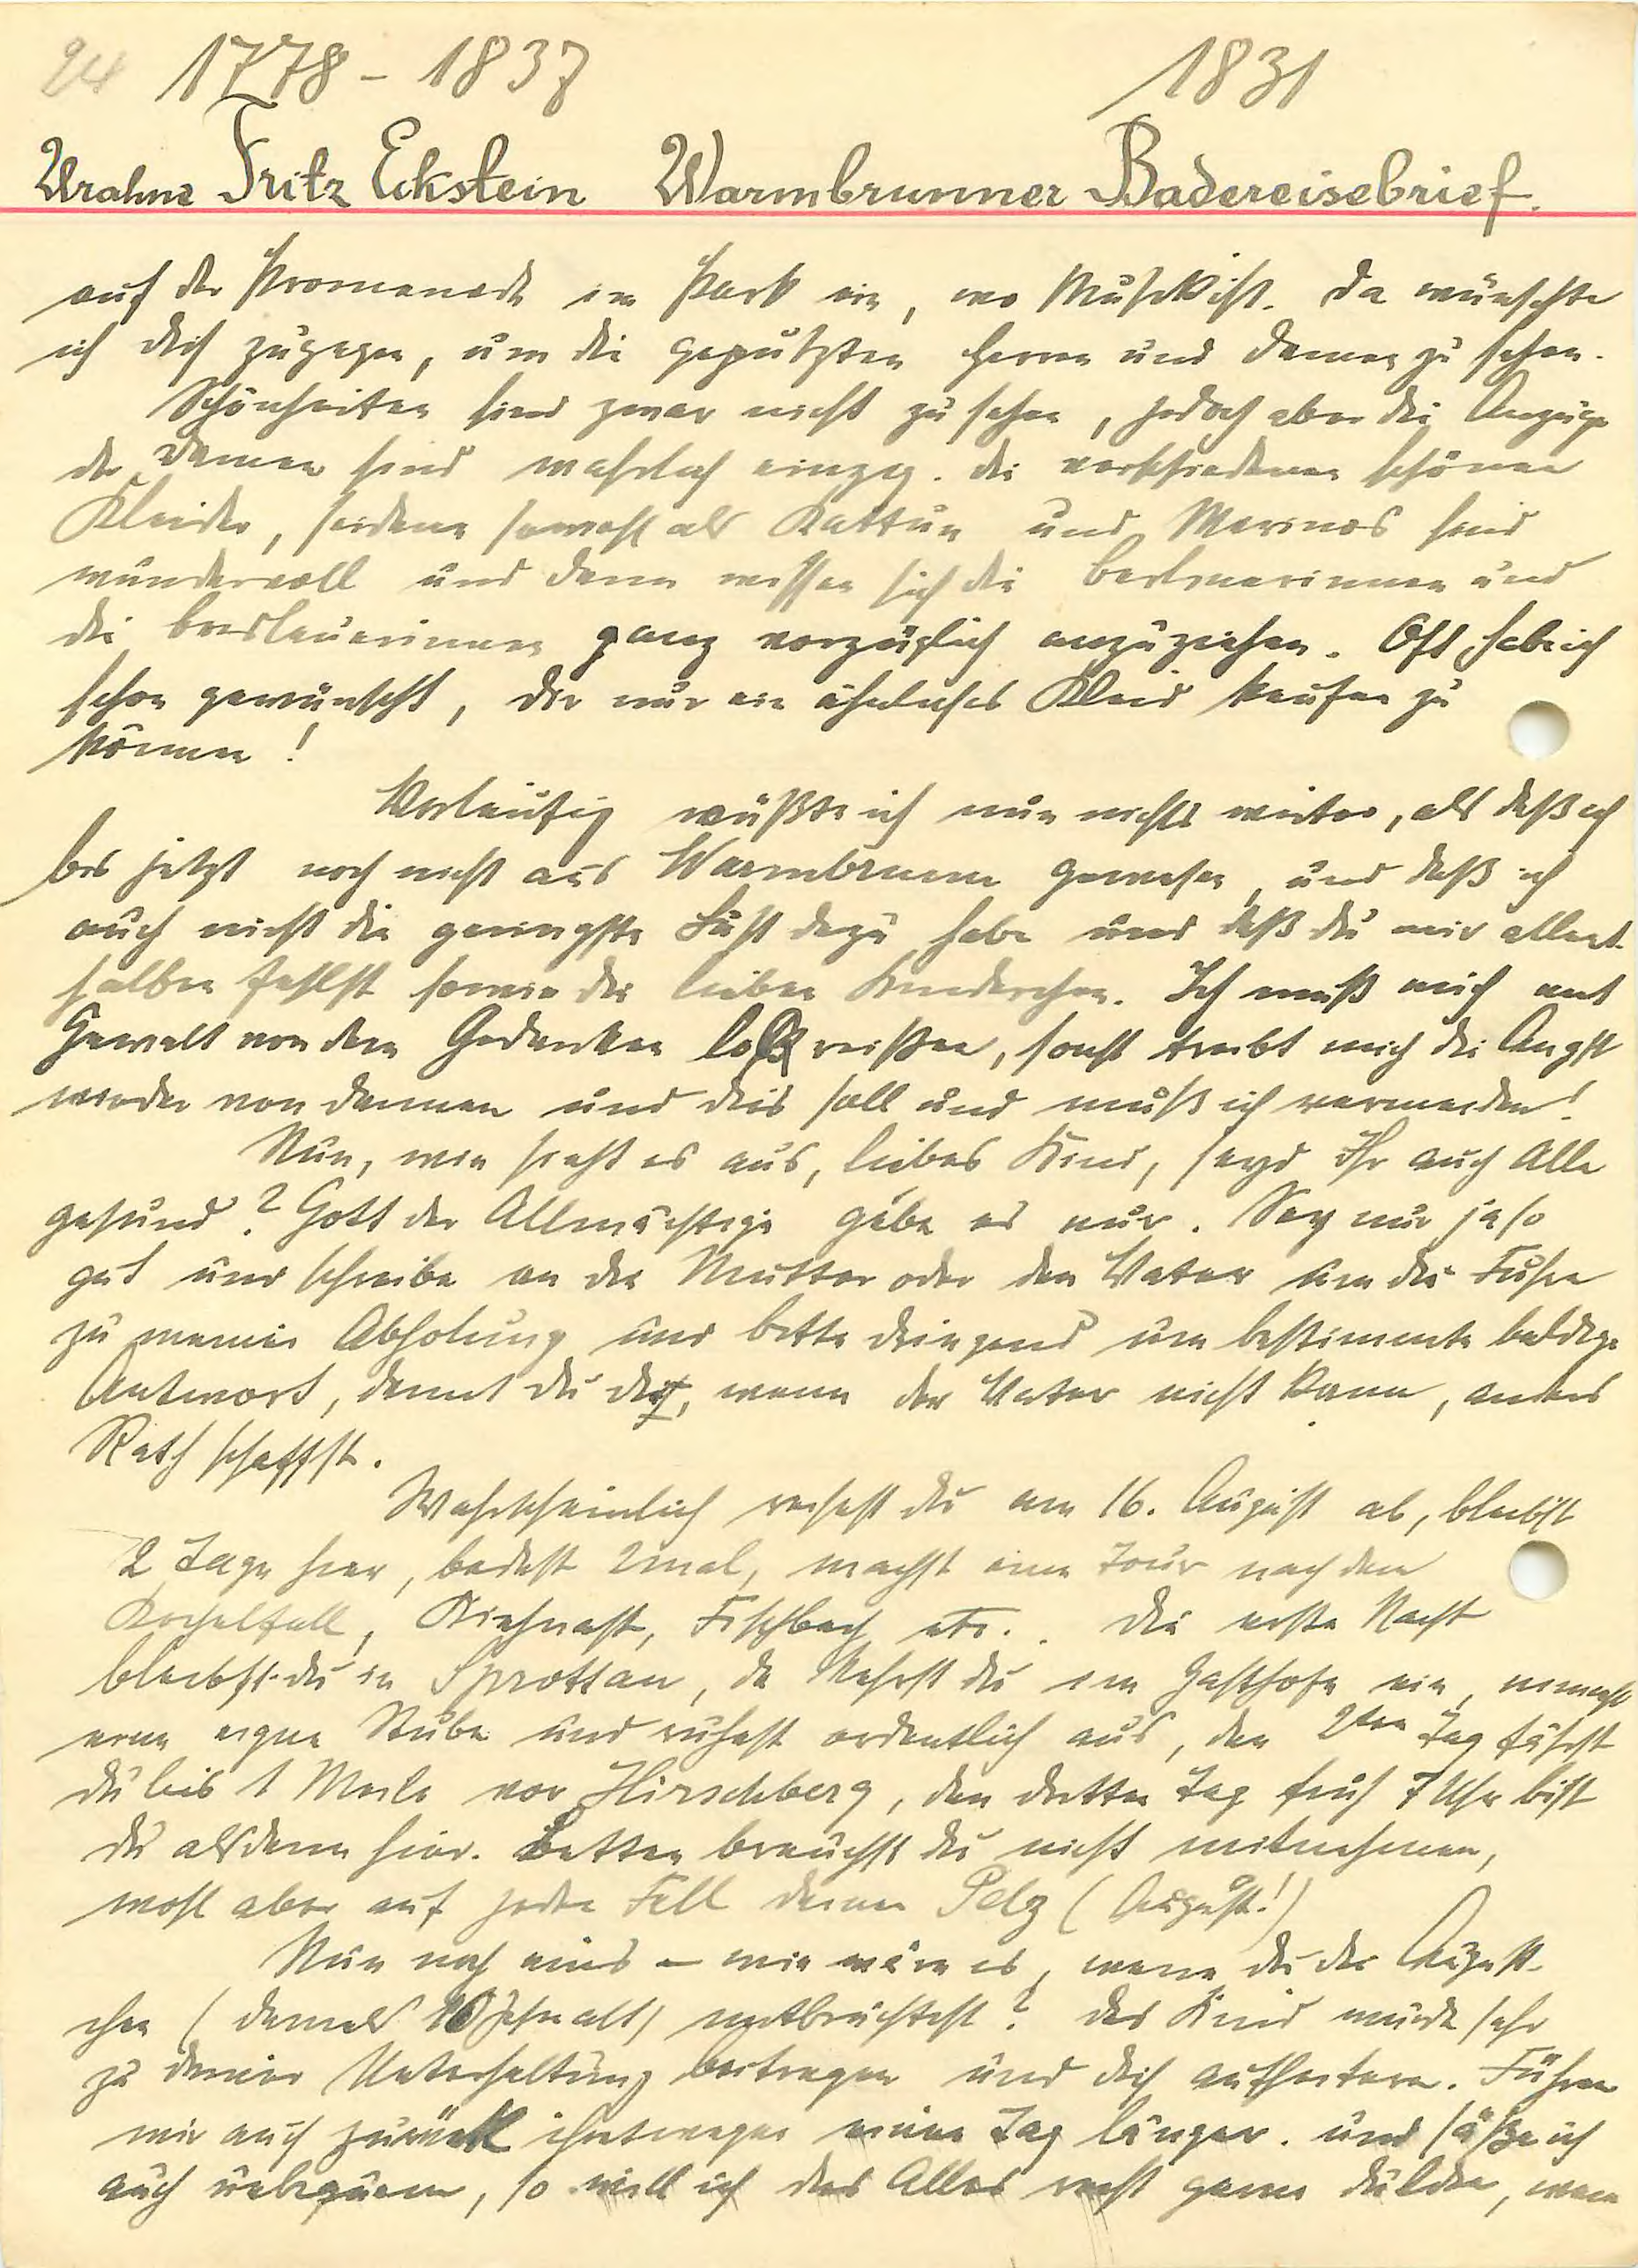 24 1778 - 1837 1831
Urahne Fritz Eckstein Warmbrunner Badereisebrief.
auf der Promenade im Park ein, wo Musik ist. Da wünschte
ich dich zugegen, um die geputzten Herren und Damen zu sehen.
Schönheiten sind zwar nicht zu sehen, jedoch aber die Anzüge
der Damen sind wahrlich einzig. Die verschiedenen schönen
Kleider, seidene sowohl als Kattun und Merinos sind
wundervoll und dann wissen sich die Berlinerinnen und
die Breslauerinnen ganz vorzüglich anzuziehen. Oft hab ich
schon gewünscht, dir nur ein ähnliches Kleid kaufen zu
können!
Vorläufig wüßte ich nun nichts weiter, als daß ich
bis jetzt noch nicht aus Warmbrunn gewesen, und daß ich
auch nicht die geringste Lust dazu habe und daß du mir allent-
halben fehlst sowie die lieben Kinderchen. Ich muß mich mit
Gewalt von dem Gedanken losreißen, sonst treibt mich die Angst
wieder von dannen und dies soll und muß ich vermeiden!
Nun, wie sieht es aus, liebes Kind, seyd Ihr auch Alle
gesund? Gott der Allmächtige gebe es nur. Sey nur ja so
gut und schreibe an die Mutter oder den Vater um die Fuhre
zu meiner Abholung und bitte dringend um bestimmte baldige
Antwort, damit du dir, wenn der Vater nicht kann, anders
Rath schaffst.
Wahrscheinlich reisest du am 16. August ab, bleibst
2 Tage hier, badest 2mal, machst eine Tour nach dem
Kochelfall, Kienast, Fischbach etc.. Die erste Nacht
bleibst du in Sprottau, da kehrst du im Gasthofe ein, nimmst
eine eigne Stube und ruhest ordentlich aus, den 2ten Tag fährst
du bis 1 Meile vor Hirschberg, den dritten Tag früh 7 Uhr bist
du alsdann hier. Betten brauchst du nicht mitnehmen,
wohl aber auf jeden Fall deinen Pelz (August!)
Nun noch eins – wie wäre es, wenn du das August-
chen (damals 10 Jahr alt) mitbrächtest? Das Kind würde sehr
zu deiner Unterhaltung beitragen und dich aufheitern. Führen
wir auch zurück ihretwegen einen Tag länger. und säße ich
auch unbequem, so will ich das Alles recht gerne dulden, wenn